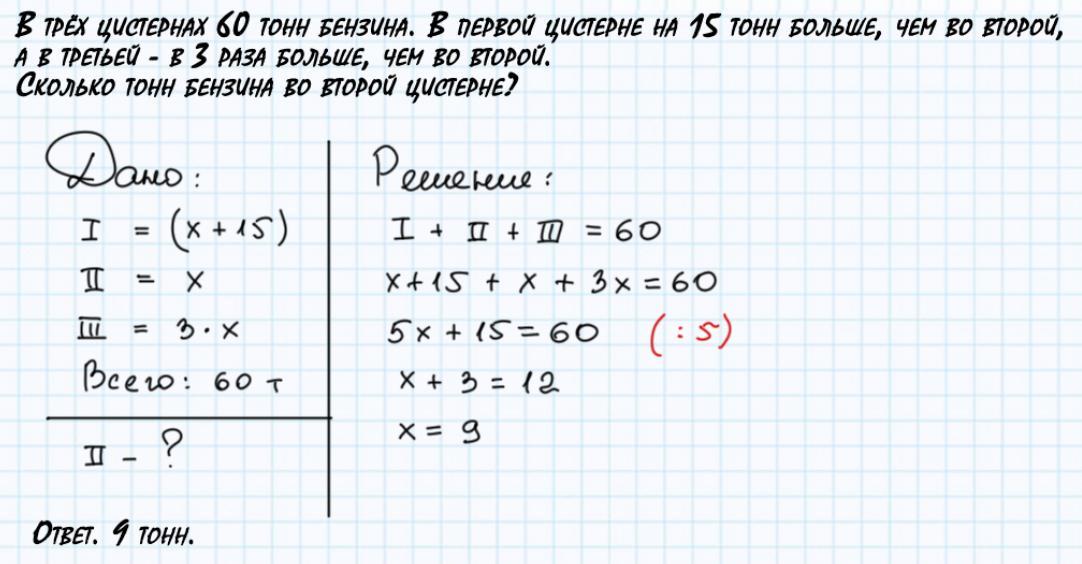 В трёх цистернах 60 тонн бензина. В первой цистерне на 15 тонн больше, чем во второй,
а в третьей - в 3 раза больше, чем во второй.
Сколько тонн бензина во второй цистерне?
Дано:
I = (x + 15)
II = x
III = 3 · x
Всего: 60 т
II - ?
Решение:
I + II + III = 60
x + 15 + x + 3x = 60
5x + 15 = 60 (: 5)
x + 3 = 12
x = 9
Ответ. 9 тонн.